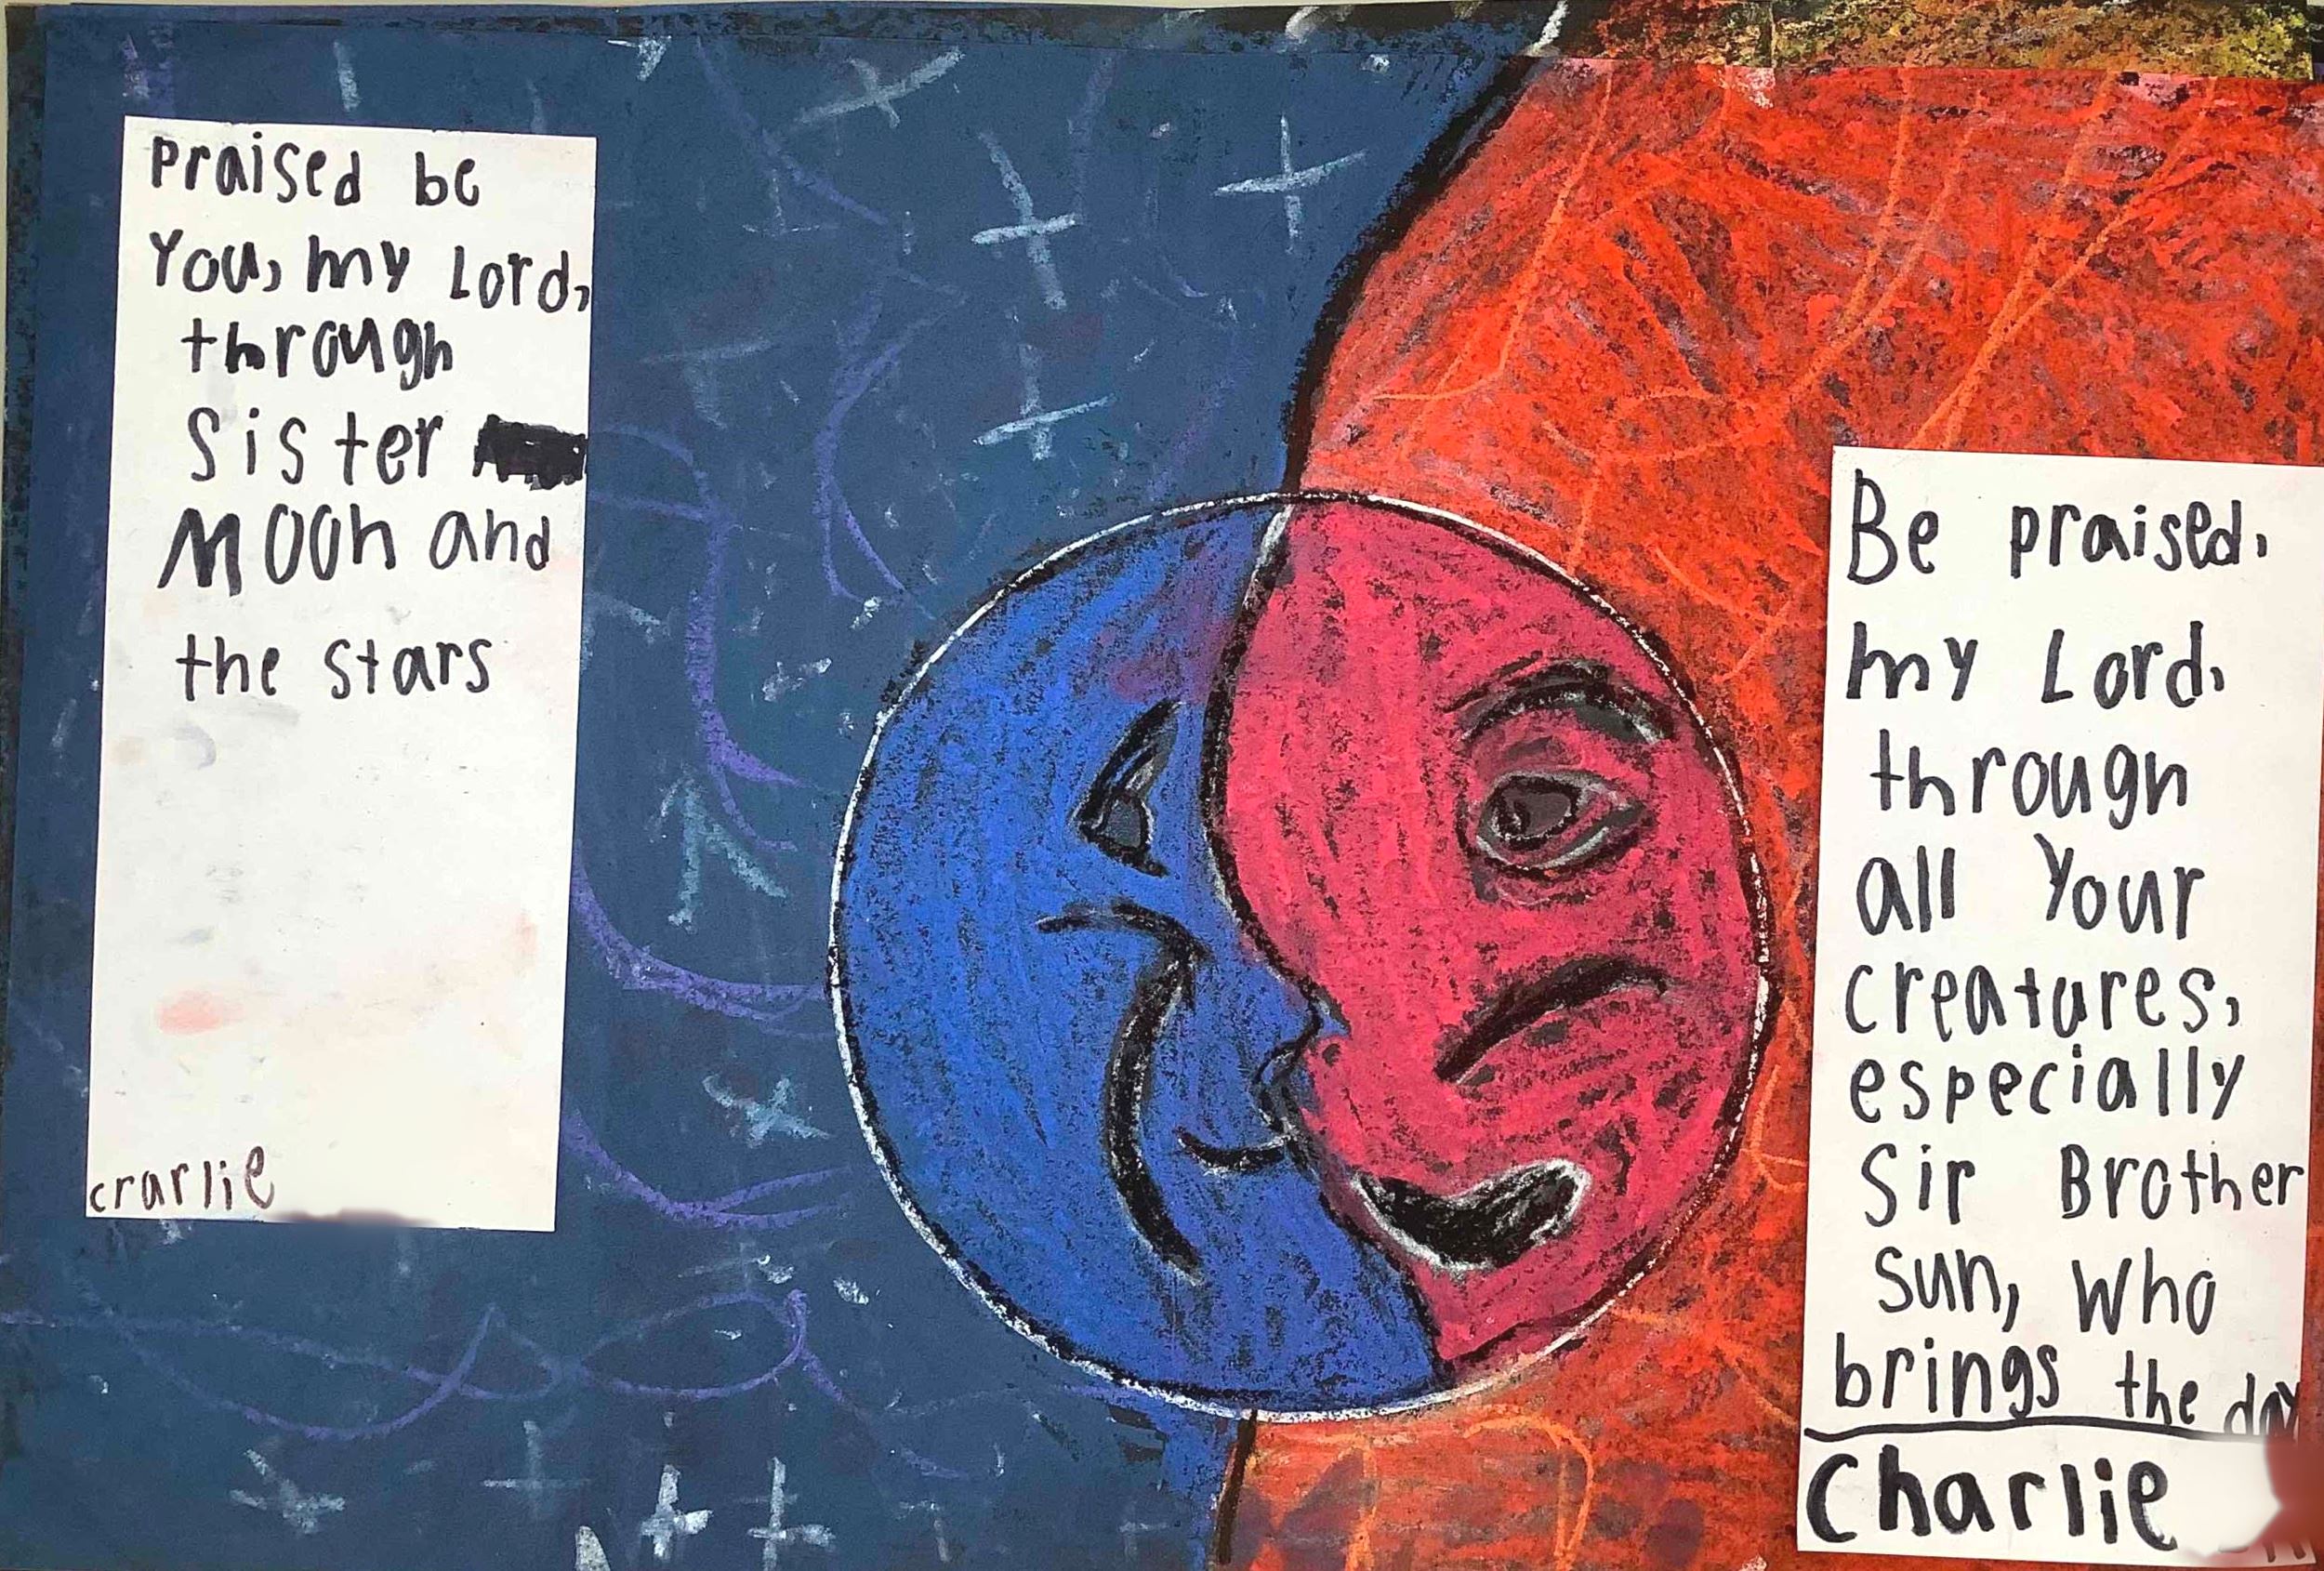 Praised be
You, my Lord,
through
Sister
Moon and
the stars
crarlie
Be praised,
my Lord,
through
all Your
creatures,
especially
Sir Brother
sun, who
brings the day
Charlie